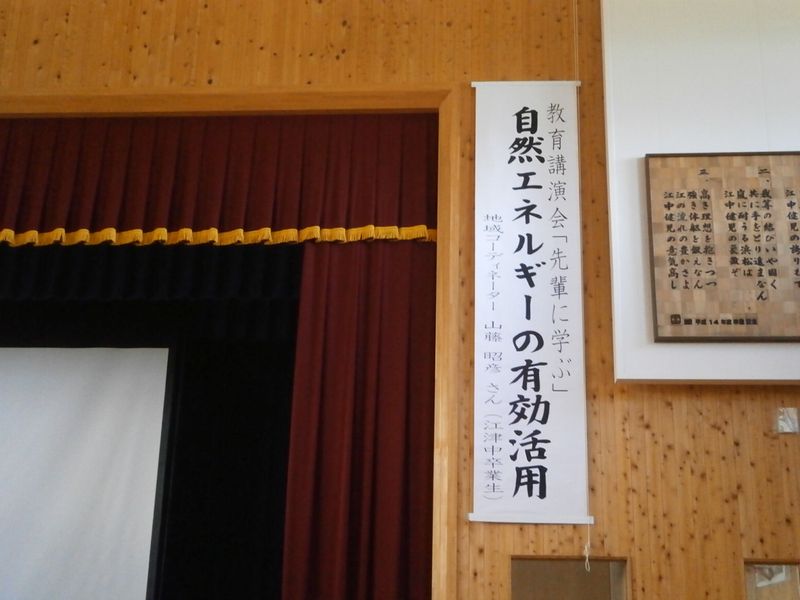 教育講演会「先輩に学ぶ」
自然エネルギーの有効活用
地域コーディネーター 山藤 昭彦 さん （江津中卒業生）
江中健児の誇りもて
二、我等の結びいや固く
共に手をとり進まなん
嵐に耐うる浜松は
江中健児の豪毅ぞ
三、高き理想を抱きつつ
強き体躯を鍛えなん
江の流れの豊かさよ
江中健児の意気高し
平成14年度卒業製作